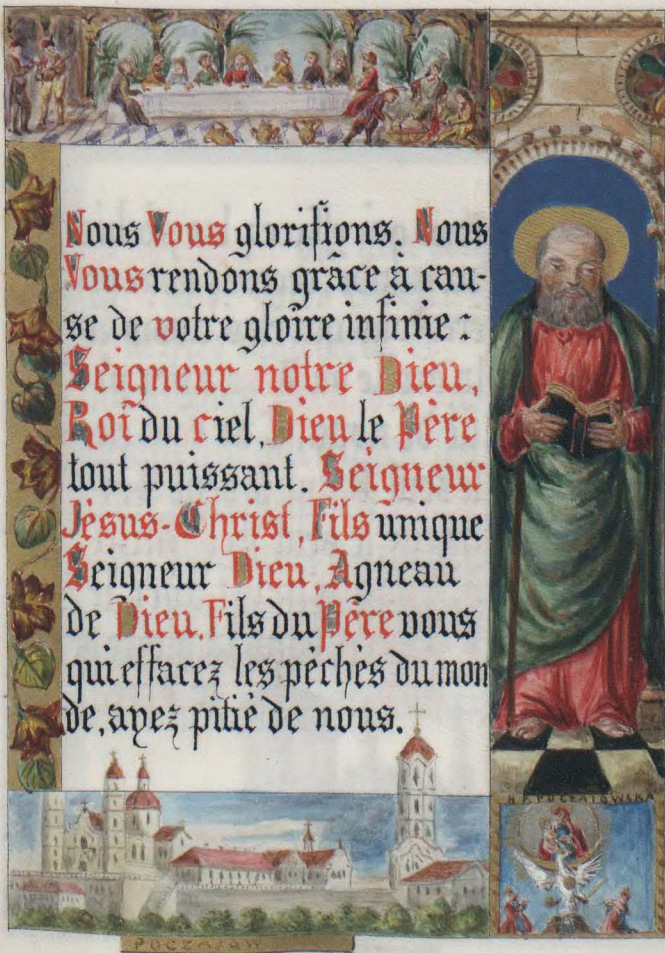 Nous Vous glorifions. Nous
Vous rendons grâce à cau-
se de votre gloire infinie :
Seigneur notre Dieu,
Roi du ciel, Dieu le Père
tout puissant. Seigneur
Jèsus-Christ, Fils unique
Seigneur Dieu, Agneau
de Dieu, Fils du Père vous
qui effacez les pèchès du mon
de, ayez pitiè de nous.
N.P. POCZAJOWSKA
POCZAJOW